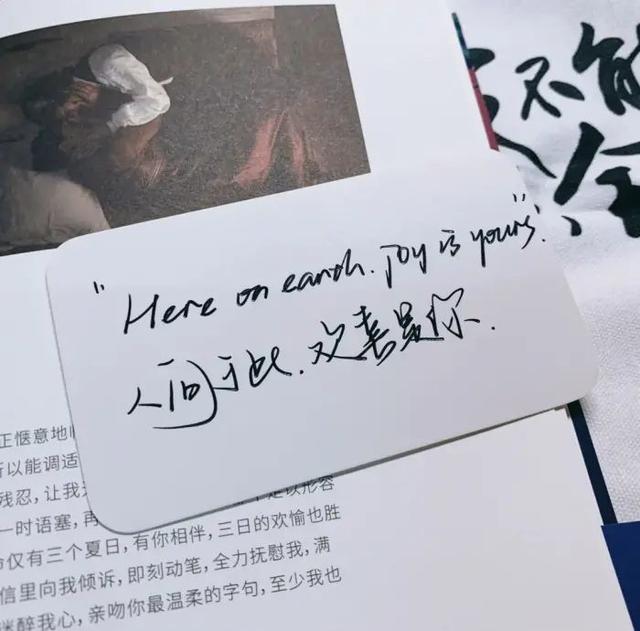 不能
"Here on earth. joy is yours".
人间于此. 欢喜是你.
正惬意地
所以能调适
残忍，让我
一时语塞，再 足以形容
命仅有三个夏日，有你相伴，三日的欢愉也胜
信里向我倾诉，即刻动笔，全力抚慰我，满
迷醉我心，亲吻你最温柔的字句，至少我也